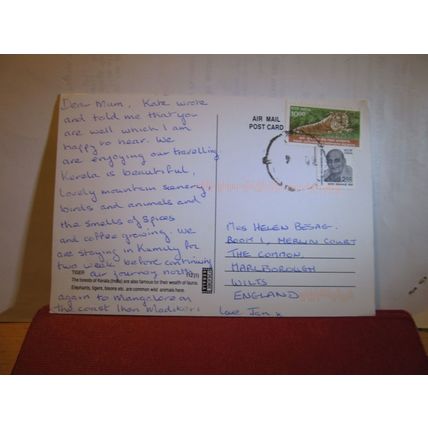 Dear Mum, Kate wrote
and told me that you
are well which I am
happy to hear. We
are enjoying our travelling.
Kerela is beautiful,
lovely mountain scenery
birds and animals and
the smells of spices
and coffee growing. We
are staying in Kumily for
two weeks before continuing
our journey north
TIGER
The forests of Kerala (India) are also famous for their wealth of fauna.
Elephants, tigers, bisons etc. are common wild animals here.
again to Mangalore on
the coast then Madikeri
AIR MAIL
POST CARD
Mrs HELEN BESAG.
ROOM 1, MERLIN COURT
THE COMMON,
MARLBOROUGH
WILTS
ENGLAND
Love Jan x